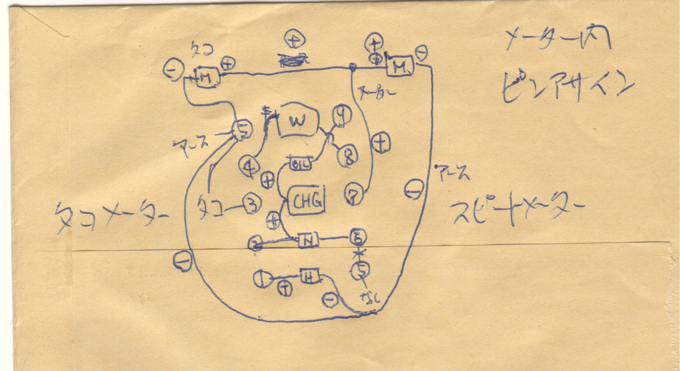 メーター内
ピンアサイン
タコ
⊖
M
⊕
⊕
⊕
M
⊖
メーター
アース
⑤
W
9
④
⑧
OIL
⊕
⊕
アース
タコ
③
CHG
⑦
⊖
タコメーター
スピードメーター
⊕
②
N
⑥
⊖
⑤
なし
①
⊕
H
⊖